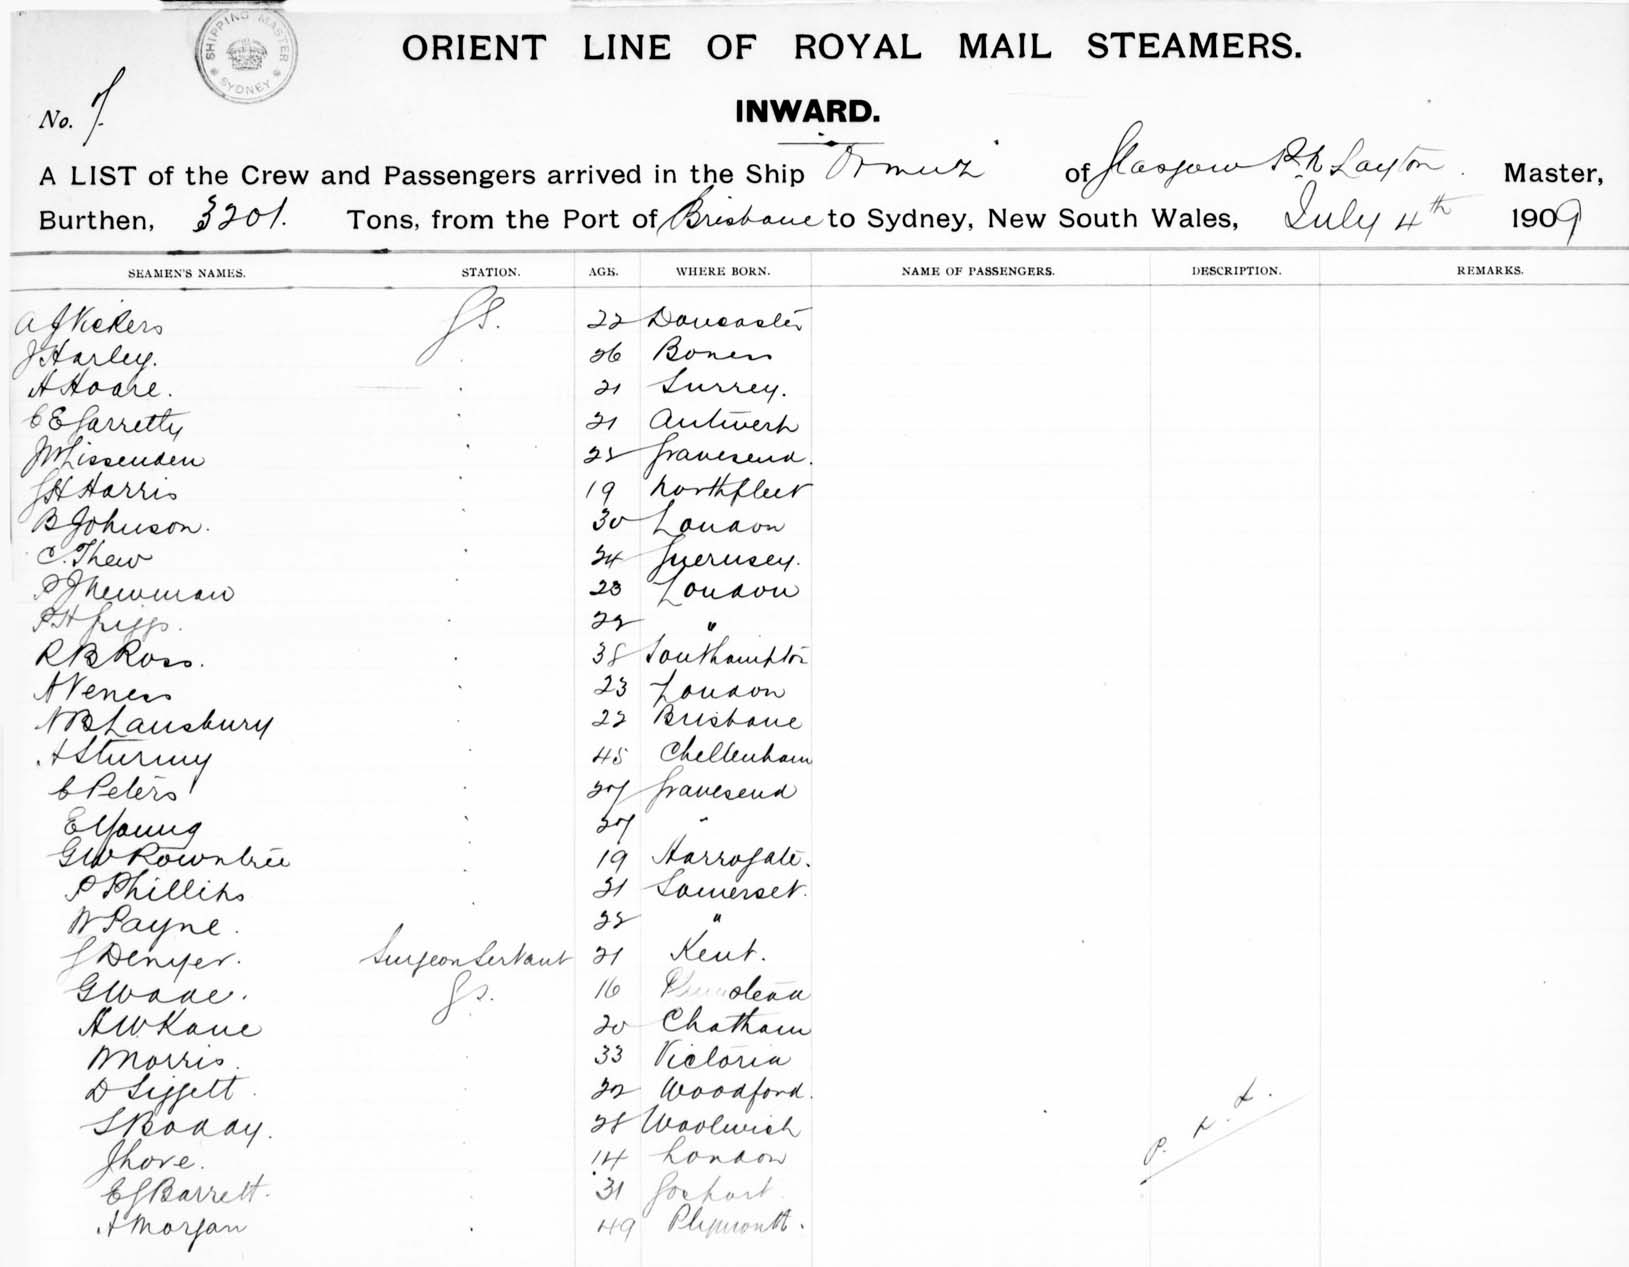 SHIPPING MASTER SYDNEY
ORIENT LINE OF ROYAL MAIL STEAMERS.
INWARD.
No. 7
A LIST of the Crew and Passengers arrived in the Ship Ormuz of Glasgow R. N Layton Master,
Burthen, 3201. Tons, from the Port of Brisbane to Sydney, New South Wales, July 4th 1909
SEAMEN'S NAMES. STATION. AGE. WHERE BORN. NAME OF PASSENGERS. DESCRIPTION. REMARKS.
A J Vickers GS. 22 Doncaster
J Harley. 26 Boness
A Hoare. 21 Surrey.
C E Garretty 21 Antwerp
J W Lissenden 28 Gravesend.
G H Harris 19 Northfleet
B Johnson. 30 London
C. Thew 24 Guernsey.
P J Newman 23 London
P H Griggs. 22 "
R B Ross. 38 Southampton
A Veness 23 London
N B Lansbury 22 Brisbane
A Sturmy 45 Cheltenham
C Peters 27 Gravesend
E Young 27 "
G W Rowntree 19 Harrogate.
P Phillips 21 Somerset.
W Payne. 28 "
G Denyer. Surgeon Servant 21 Kent.
G Wade. GS. 16
A W Kane 20 Chatham
W Morris. 33 Victoria
D Liggett. 22 Woodford.
S Boday. 28 Woolwich
J Love. 14 London
E G Barrett. 31 Gosport
A Morgan 49 Plymouth.